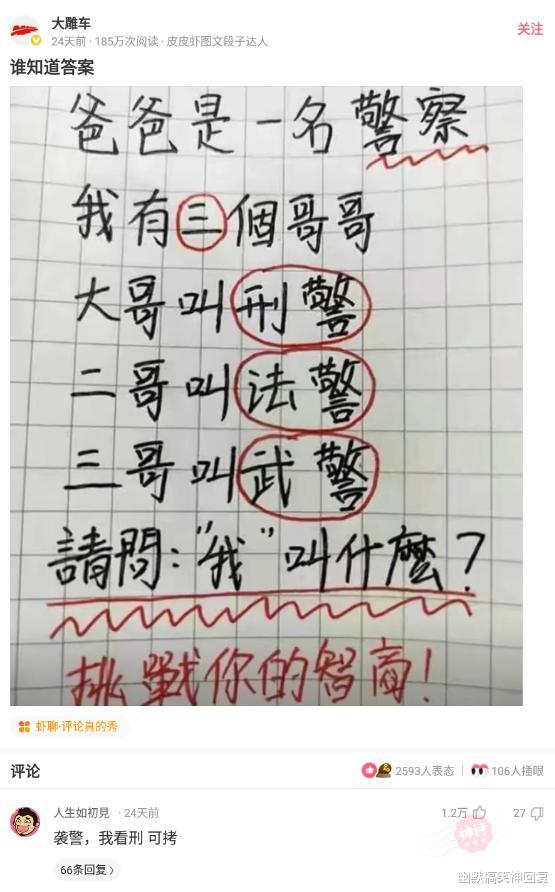 大雕车
24天前 · 185万次阅读 · 皮皮虾图文段子达人
关注
谁知道答案
爸爸是一名警察
我有三個哥哥
大哥叫刑警
二哥叫法警
三哥叫武警
請問:“我”叫什麼?
挑戰你的智商!
虾聊·评论真的秀
评论
2593人表态
106人插眼
人生如初見 · 24天前
1.2万
27
袭警，我看刑 可拷
神评
66条回复
幽默搞笑神回复